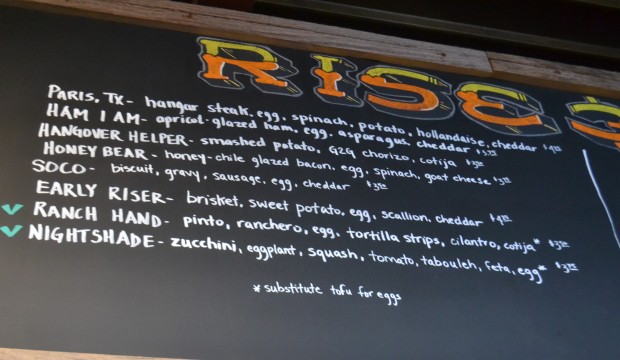 RISE
PARIS, TX- hangar steak, egg, spinach, potato, hollandaise, cheddar
HAM I AM- apricot-glazed ham, egg, asparagus, cheddar
HANGOVER HELPER- smashed potato, G2G chorizo, cotija
HONEY BEAR- honey-chile glazed bacon, egg, spinach, goat cheese
SOCO- biscuit, gravy, sausage, egg, cheddar
EARLY RISER- brisket, sweet potato, egg, scallion, cheddar
RANCH HAND- pinto, ranchero, egg, tortilla strips, cilantro, cotija*
NIGHTSHADE- zucchini, eggplant, squash, tomato, tabouleh, feta, egg*
* substitute tofu for eggs